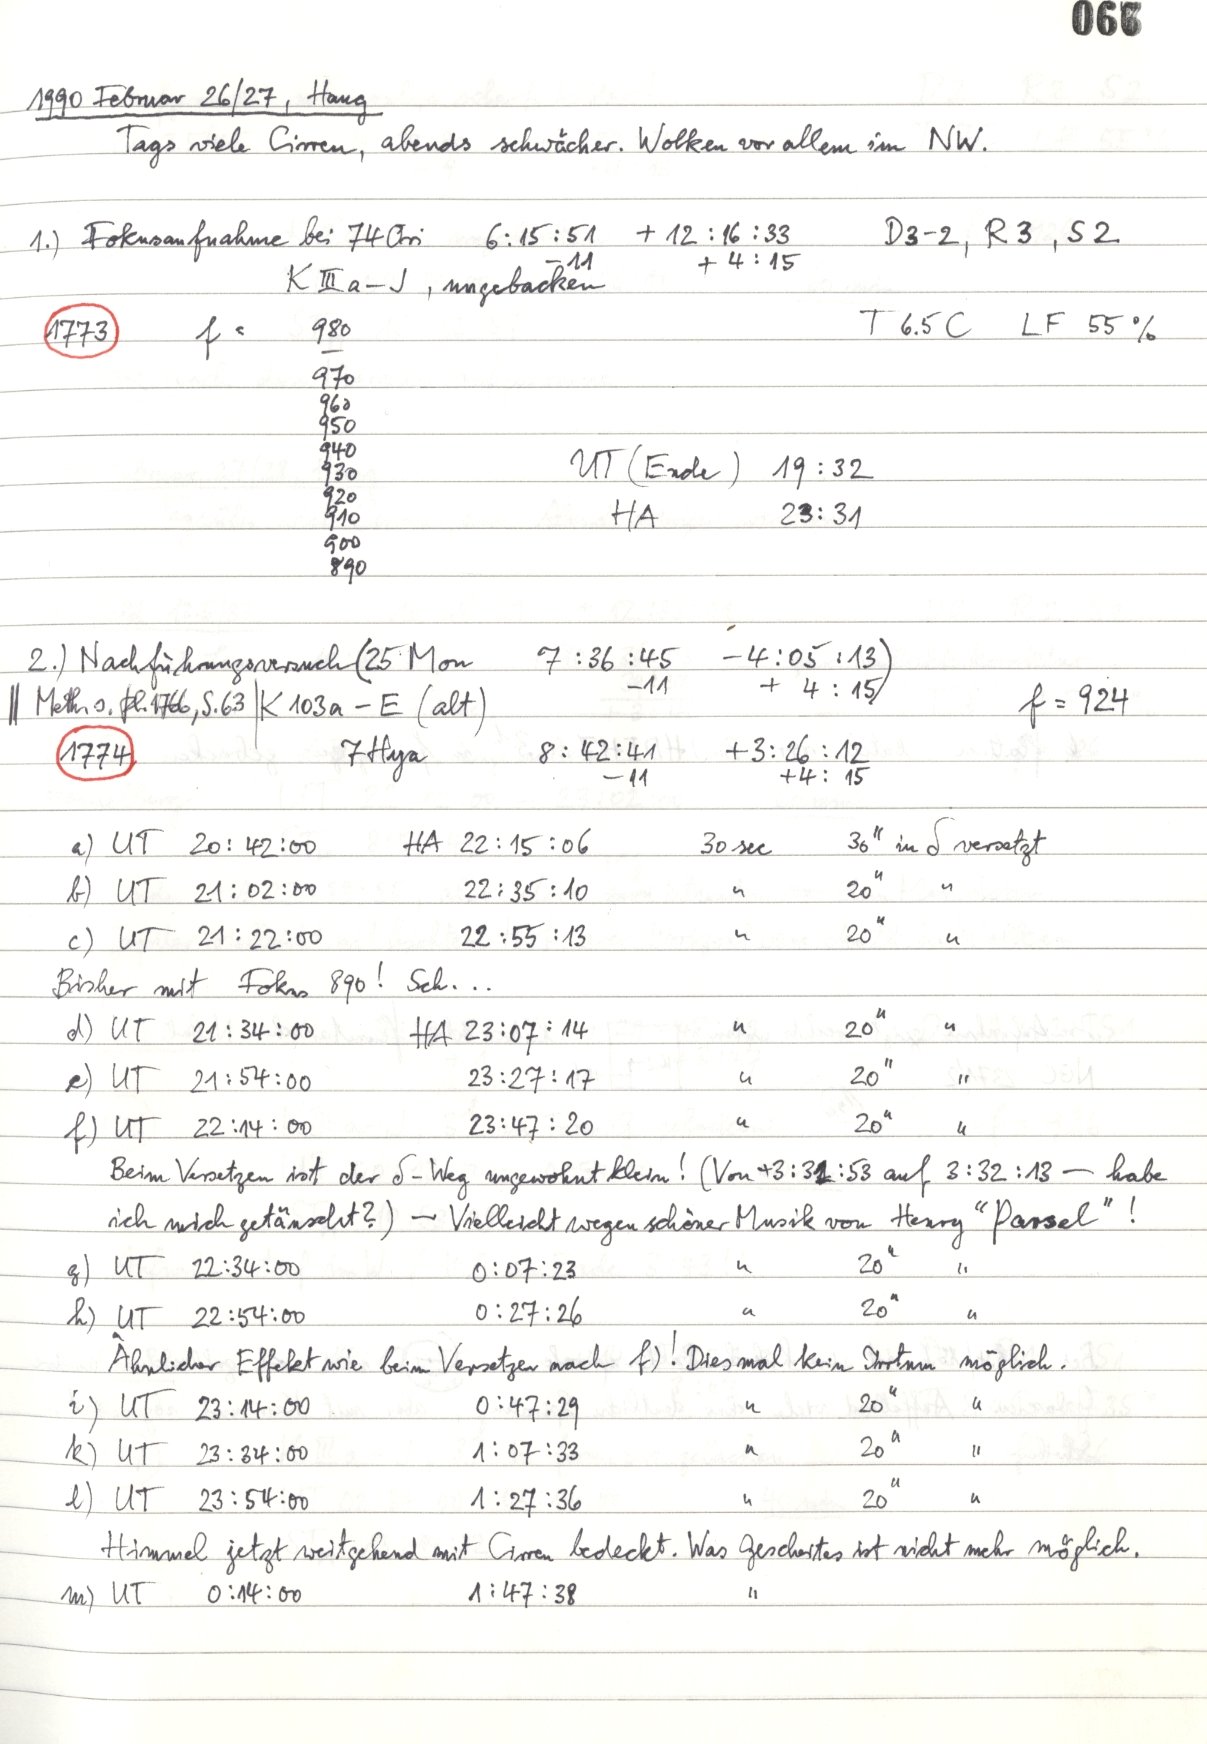 066
1990 Februar 26/27, Haug
Tags viele Cirren, abends schwächer. Wolken vor allem im NW.
1.) Fokusaufnahme bei 74 Ori 6:15:51 +12:16:33 D3-2, R3, S2
-11 +4:15
K IIIa-J, ungebacken
1773 f = 980 T 6.5 C LF 55 %
970
960
950
940
930
920
910
900
890
UT (Ende) 19:32
HA 23:31
2.) Nachführungsversuch (25 Mon 7:36:45 -4:05:13)
-11 +4:15
|| Meth. s. Pl. 1766, S.63 | K 103a-E (alt) f = 924
1774 7 Hya 8:42:41 +3:26:12
-11 +4:15
a) UT 20:42:00 HA 22:15:06 30 sec 30" in δ versetzt
b) UT 21:02:00 22:35:10 " 20" "
c) UT 21:22:00 22:55:13 " 20" "
Bisher mit Fokus 890! Sch...
d) UT 21:34:00 HA 23:07:14 " 20" "
e) UT 21:54:00 23:27:17 " 20" "
f) UT 22:14:00 23:47:20 " 20" "
Beim Versetzen ist der δ-Weg ungewohnt klein! (Von +3:31:53 auf 3:32:13 — habe
ich mich getäuscht?) — Vielleicht wegen schöner Musik von Henry "Parsel"!
g) UT 22:34:00 0:07:23 " 20" "
h) UT 22:54:00 0:27:26 " 20" "
Ähnlicher Effekt wie beim Versetzen nach f)! Diesmal kein Irrtum möglich.
i) UT 23:14:00 0:47:29 " 20" "
k) UT 23:34:00 1:07:33 " 20" "
l) UT 23:54:00 1:27:36 " 20" "
Himmel jetzt weitgehend mit Cirren bedeckt. Was Gescheites ist nicht mehr möglich.
m) UT 0:14:00 1:47:38 "